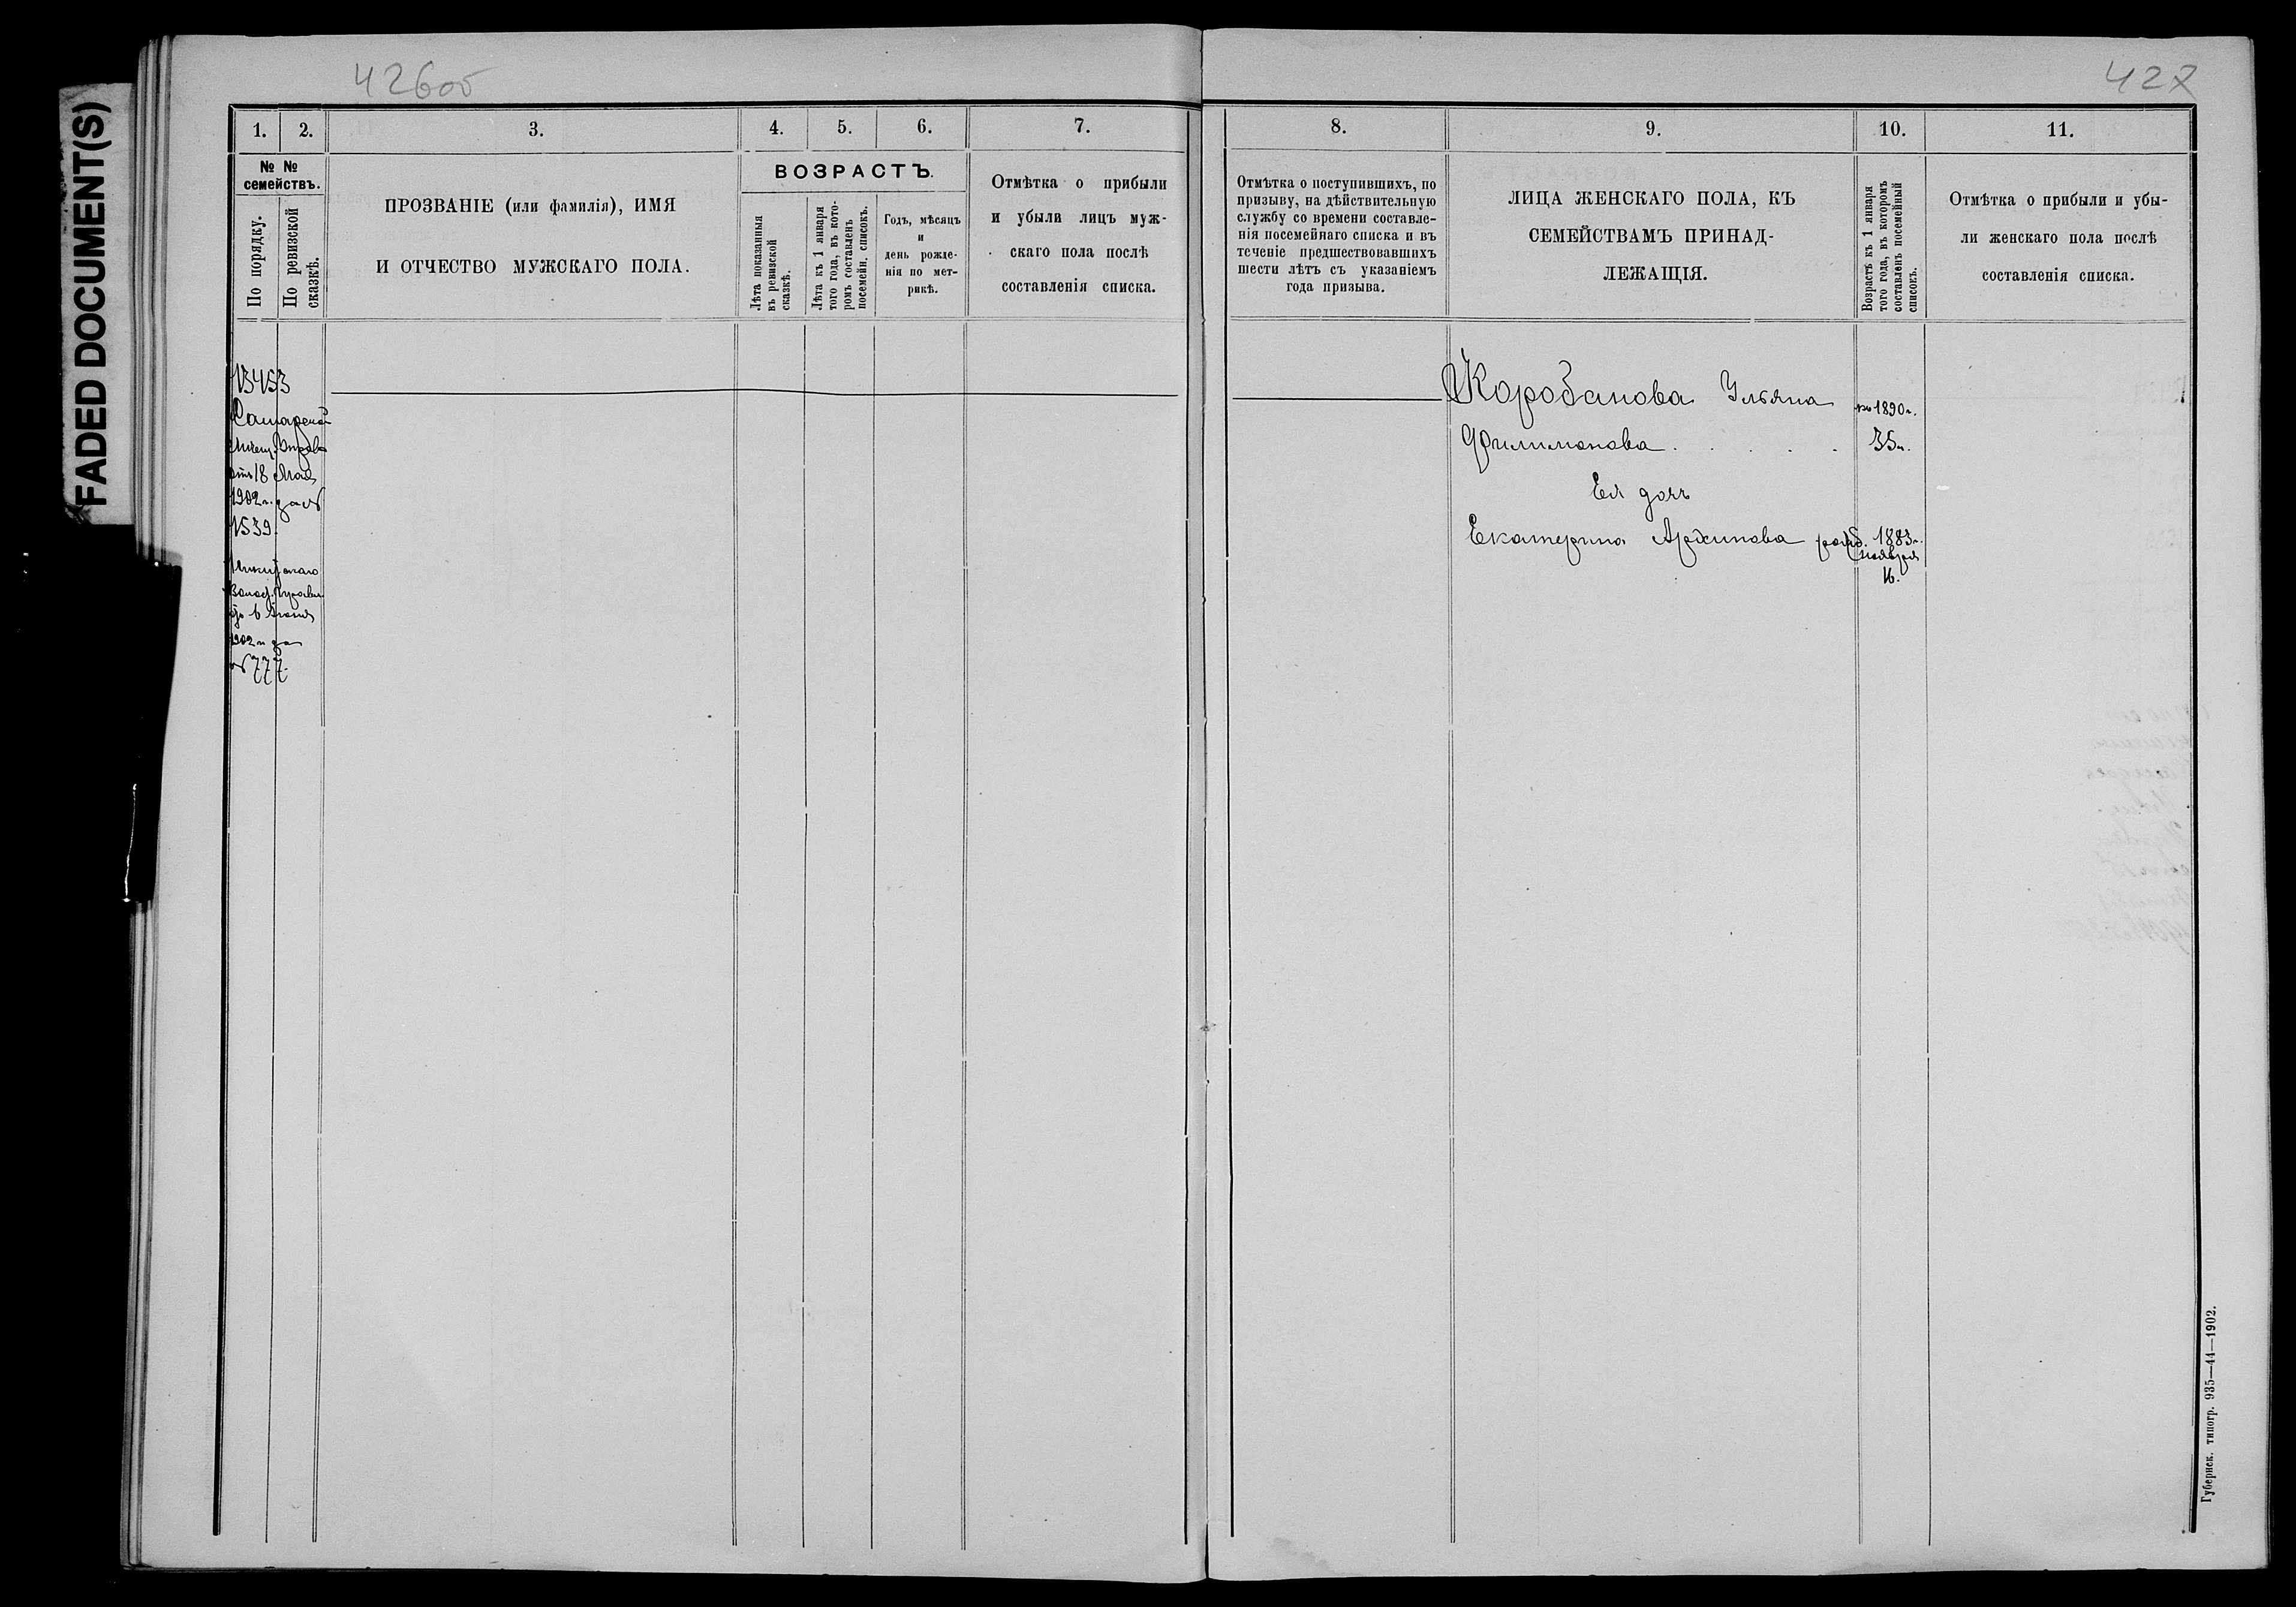 FADED DOCUMENT(S)
426об
427
1.
2.
3.
4.
5.
6.
7.
8.
9.
10.
11.
№ №
семействъ.
По порядку.
По ревизской
сказкѣ.
ПРОЗВАНІЕ (или фамилія), ИМЯ
И ОТЧЕСТВО МУЖСКАГО ПОЛА.
ВОЗРАСТЪ.
Лѣта показанныя
въ ревизской
сказкѣ.
Лѣта къ 1 января
того года, въ кото-
ромъ составленъ
посемейн. списокъ.
Годъ, мѣсяцъ
и
день рожде-
нія по мет-
рикѣ.
Отмѣтка о прибыли
и убыли лицъ муж-
скаго пола послѣ
составленія списка.
Отмѣтка о поступившихъ, по
призыву, на дѣйствительную
службу со времени составле-
нія посемейнаго списка и въ
теченіе предшествовавшихъ
шести лѣтъ съ указаніемъ
года призыва.
ЛИЦА ЖЕНСКАГО ПОЛА, КЪ
СЕМЕЙСТВАМЪ ПРИНАД-
ЛЕЖАЩІЯ.
Возрастъ къ 1 января
того года, въ которомъ
составленъ посемейный
списокъ.
Отмѣтка о прибыли и убы-
ли женскаго пола послѣ
составленія списка.
13453
Самарской
Мѣщ. Управы
отъ 18 Мая
1902 г. за №
1539.
Волост. Правл.
1902 г. за
№ 777.
Коробанова Ульяна
къ 1890 г.
Филимонова . . . . .
35 л.
Ея дочь
Екатерина Архипова рожд. 1883 г.
ноября
16.
Губернск. типогр. 935—44—1902.